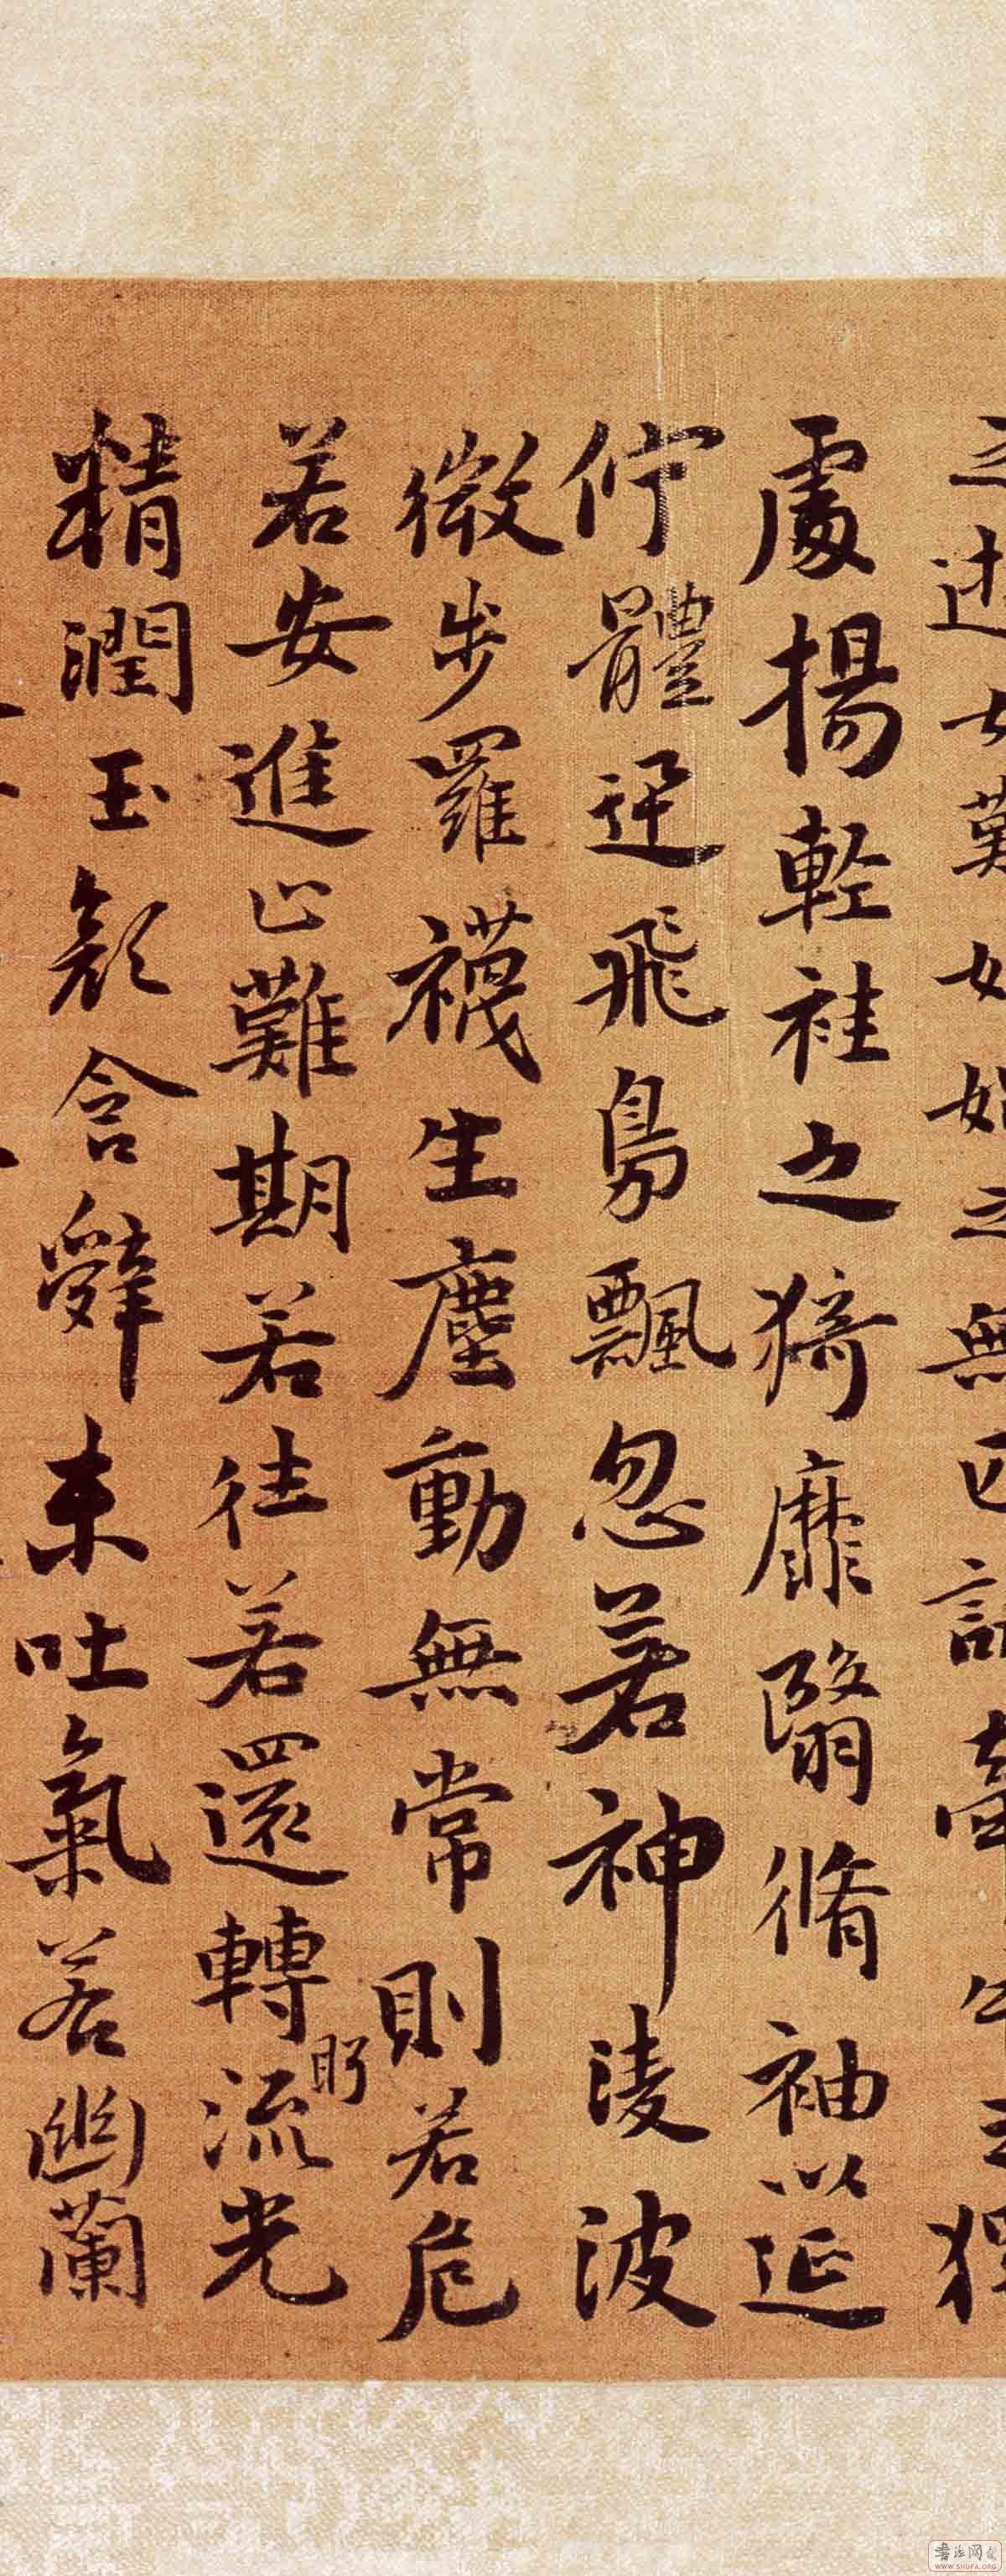 之女歎之無匹詠牽牛之獨
處揚輕袿之猗靡翳脩袖以延
佇體迅飛鳧飄忽若神淩波
微步羅襪生塵動無常則若危
若安進止難期若往若還轉眄流光
精潤玉顏含辭未吐氣若幽蘭
書法网
WWW.SHUFA.ORG